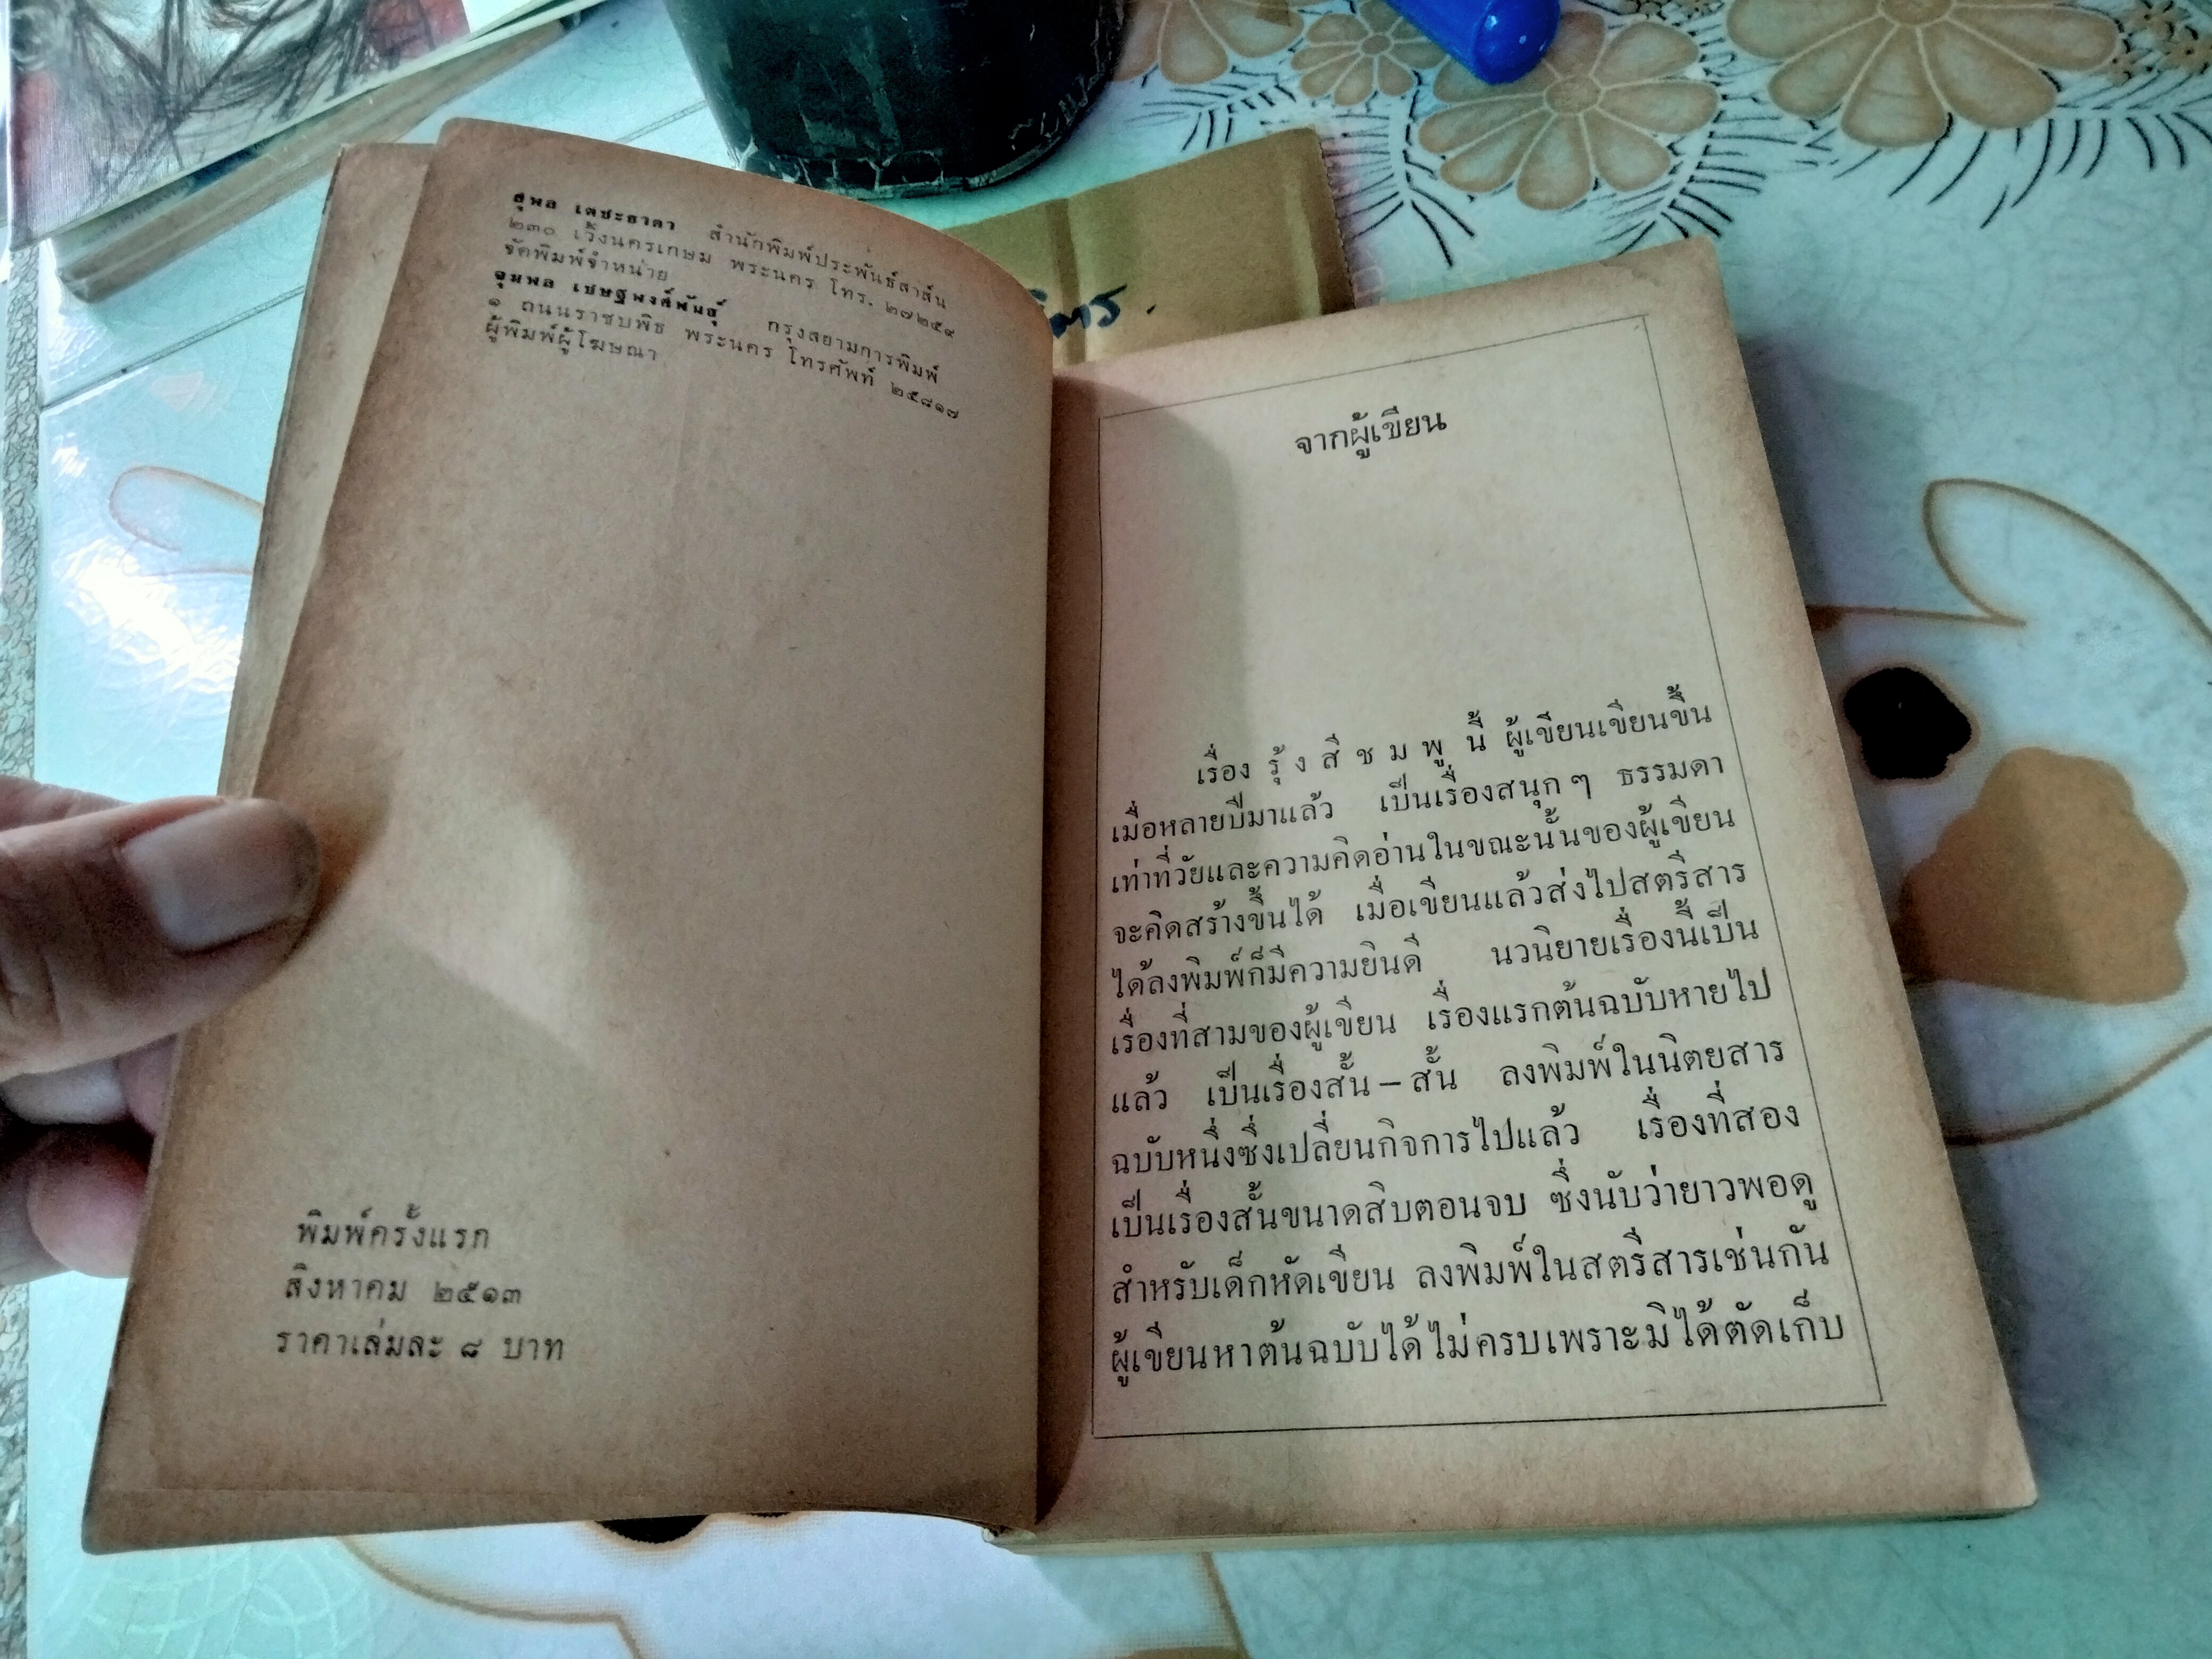 สุพล เตชะธาดา สำนักพิมพ์ประพันธ์สาส์น
๒๓๐ เวิ้งนครเกษม พระนคร โทร. ๒๗๒๕๙
จัดพิมพ์จำหน่าย
จุมพล เชษฐพงศ์พันธุ์ กรุงสยามการพิมพ์
๑ ถนนราชบพิธ พระนคร โทรศัพท์ ๒๕๘๑๗
ผู้พิมพ์ผู้โฆษณา
พิมพ์ครั้งแรก
สิงหาคม ๒๕๑๓
ราคาเล่มละ ๘ บาท
จากผู้เขียน
เรื่อง รุ้ ง สี ช ม พู นี้ ผู้เขียนเขียนขึ้น
เมื่อหลายปีมาแล้ว เป็นเรื่องสนุกๆ ธรรมดา
เท่าที่วัยและความคิดอ่านในขณะนั้นของผู้เขียน
จะคิดสร้างขึ้นได้ เมื่อเขียนแล้วส่งไปสตรีสาร
ได้ลงพิมพ์ก็มีความยินดี นวนิยายเรื่องนี้เป็น
เรื่องที่สามของผู้เขียน เรื่องแรกต้นฉบับหายไป
แล้ว เป็นเรื่องสั้น – สั้น ลงพิมพ์ในนิตยสาร
ฉบับหนึ่งซึ่งเปลี่ยนกิจการไปแล้ว เรื่องที่สอง
เป็นเรื่องสั้นขนาดสิบตอนจบ ซึ่งนับว่ายาวพอดู
สำหรับเด็กหัดเขียน ลงพิมพ์ในสตรีสารเช่นกัน
ผู้เขียนหาต้นฉบับได้ไม่ครบเพราะมิได้ตัดเก็บ